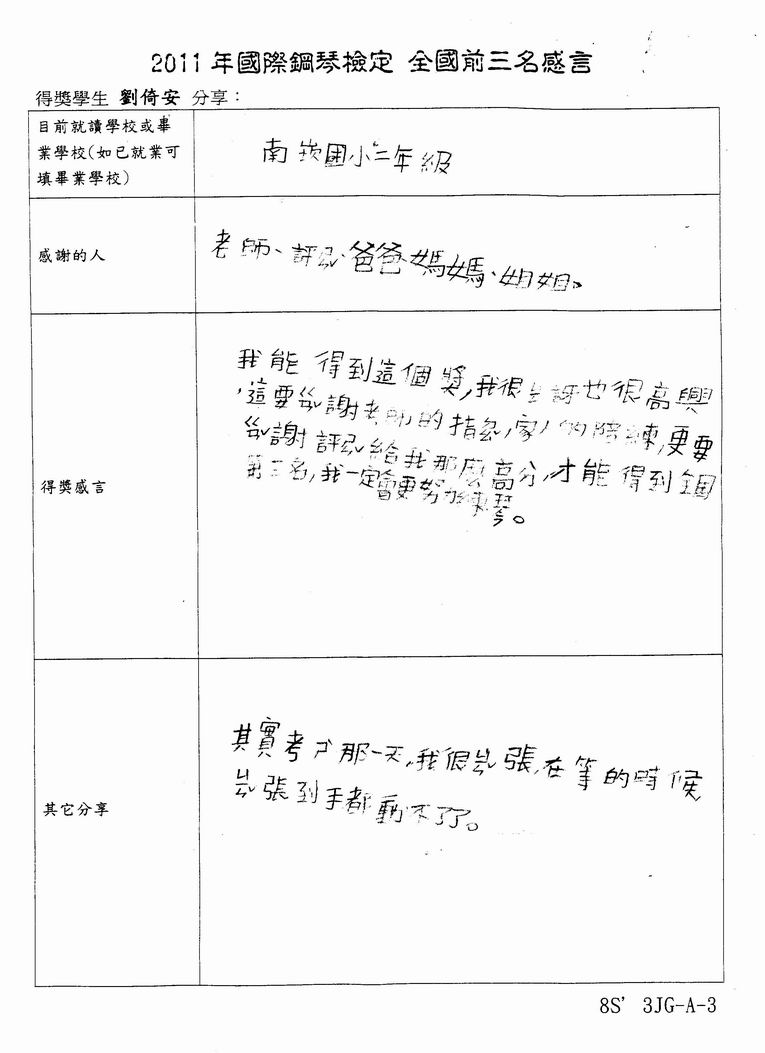 2011年國際鋼琴檢定 全國前三名感言
得獎學生 劉倚安 分享：
目前就讀學校或畢
業學校(如已就業可
填畢業學校)
南崁國小二年級
感謝的人
老師、評、爸爸媽媽、姐姐。
得獎感言
我能得到這個獎,我很訝也很高興
,這要ㄍㄢˇ謝老師的指,家人的陪練,更要
ㄍㄢˇ謝評給我那麼高分,才能得到全國
第三名,我一定會更努力練琴。
其它分享
其實考ㄕˋ那一天,我很ㄐㄧㄣˇ張,在等的時候
ㄐㄧㄣˇ張到手都動不了了。
8S' 3JG-A-3